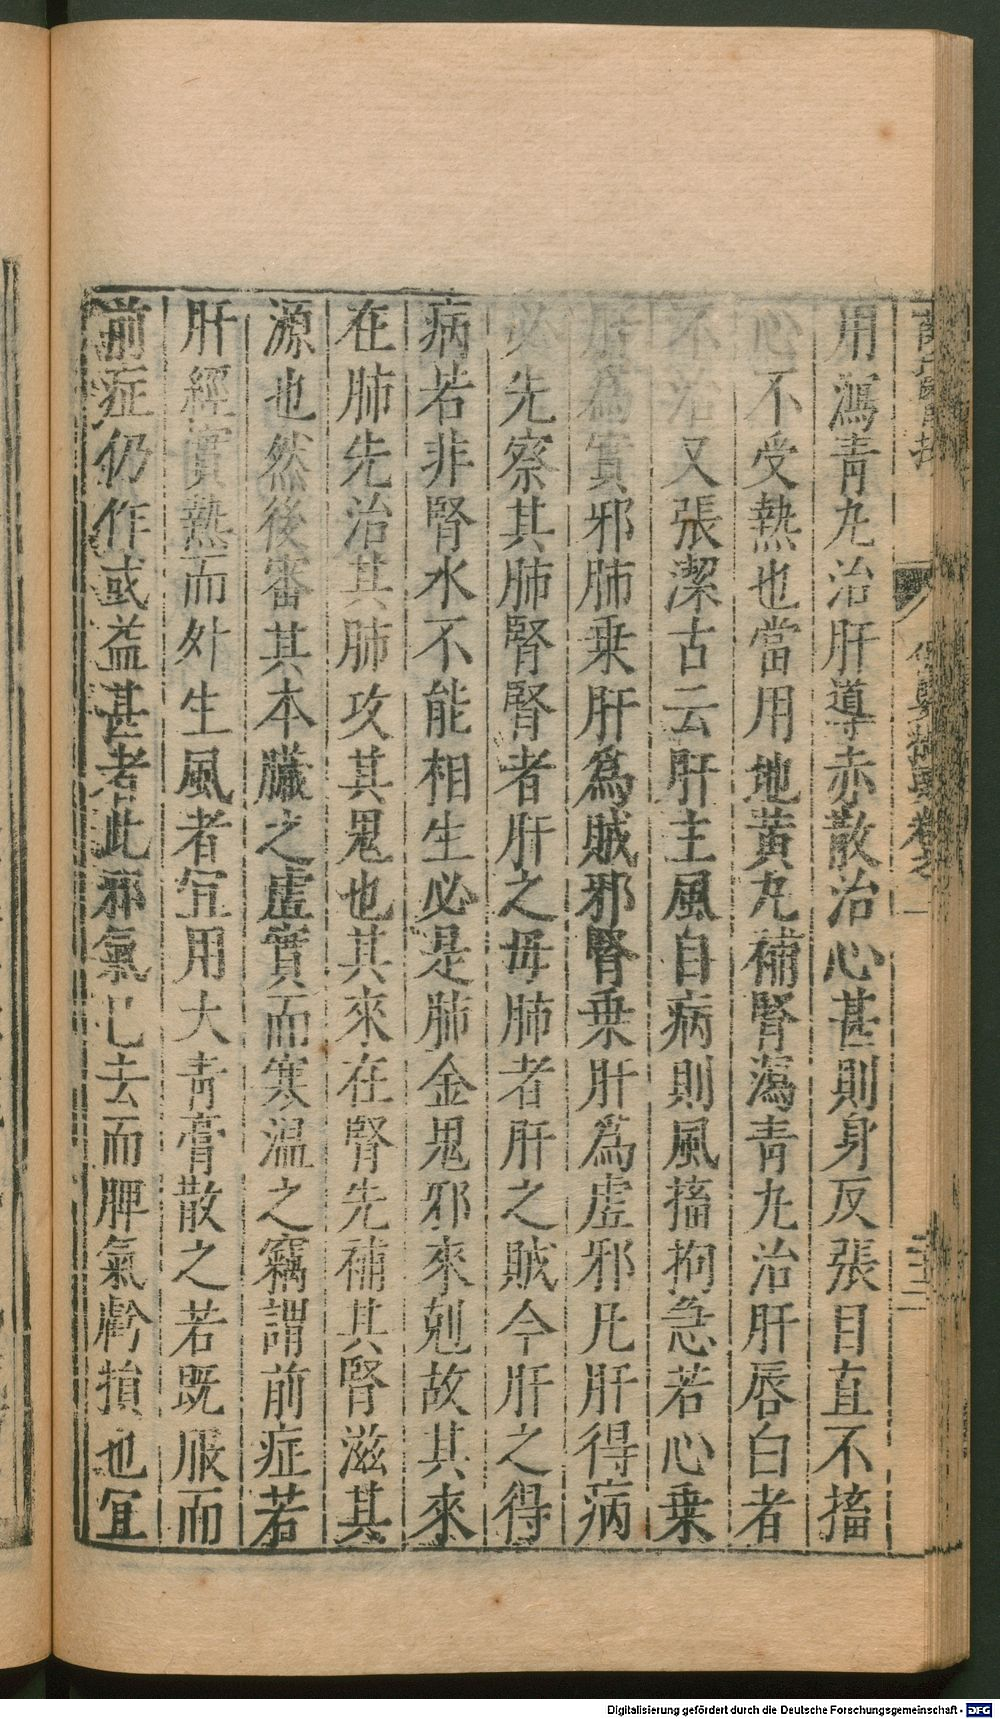 用瀉青丸治肝導赤散治心甚則身反張目直不搐
心不受熱也當用地黃丸補腎瀉青丸治肝唇白者
不治又張潔古云肝主風自病則風搐拘急若心乗
肝為實邪肺乗肝為賊邪腎乗肝為虛邪凡肝得病
必先察其肺腎腎者肝之毋肺者肝之賊今肝之得
病若非腎水不能相生必是肺金鬼邪來剋故其來
在肺先治其肺攻其鬼也其來在腎先補其腎滋其
源也然後審其本臟之虛實而寒溫之竊謂前症若
肝經實熱而外生風者宜用大青膏散之若既服而
前症仍作或益甚者此邪氣已去而脾氣虧損也宜
Digitalisierung gefördert durch die Deutsche Forschungsgemeinschaft - DFG